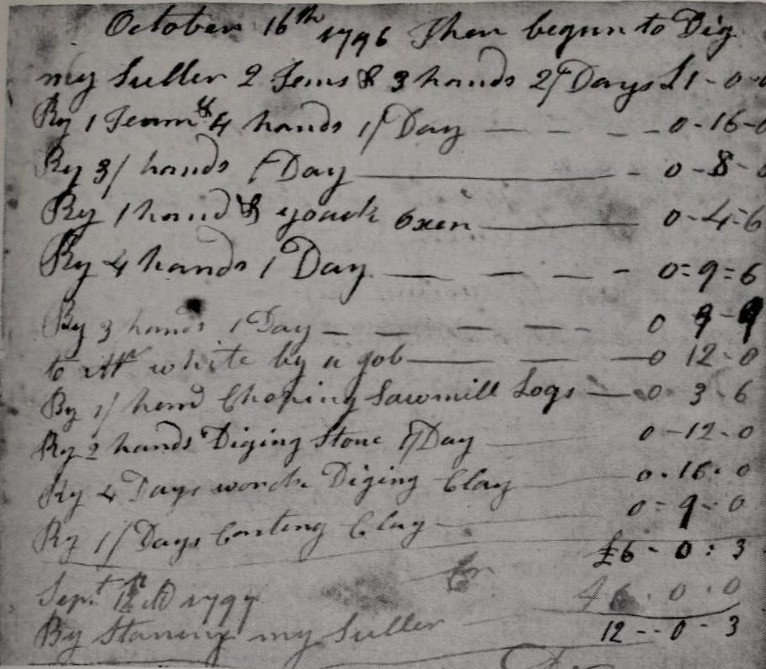 October 16th 1796 Then begun to Dig
my Suller 2 Tems & 3 hands 2/ Days £1-0-0
By 1 Team & 4 hands 1/ Day 0-16-0
By 3/ hands 1 Day 0-8-0
By 1 hand & yoack oxen 0-4=6
By 4 hands 1 Day 0=9=6
By 3 hands 1 Day 0 9-9
to Mr white by a gob 0 12-0
By 1/ hand Choping Sawmill Logs 0-3-6
By 2 hands Diging Stone 1/ Day 0-12-0
By 4 Days worck Diging Clay 0-16-0
By 1/ Days Carting Clay 0=9-0
£6-0:3
Sept 1797
By Stoning my Suller 6.0.0
12--0-3